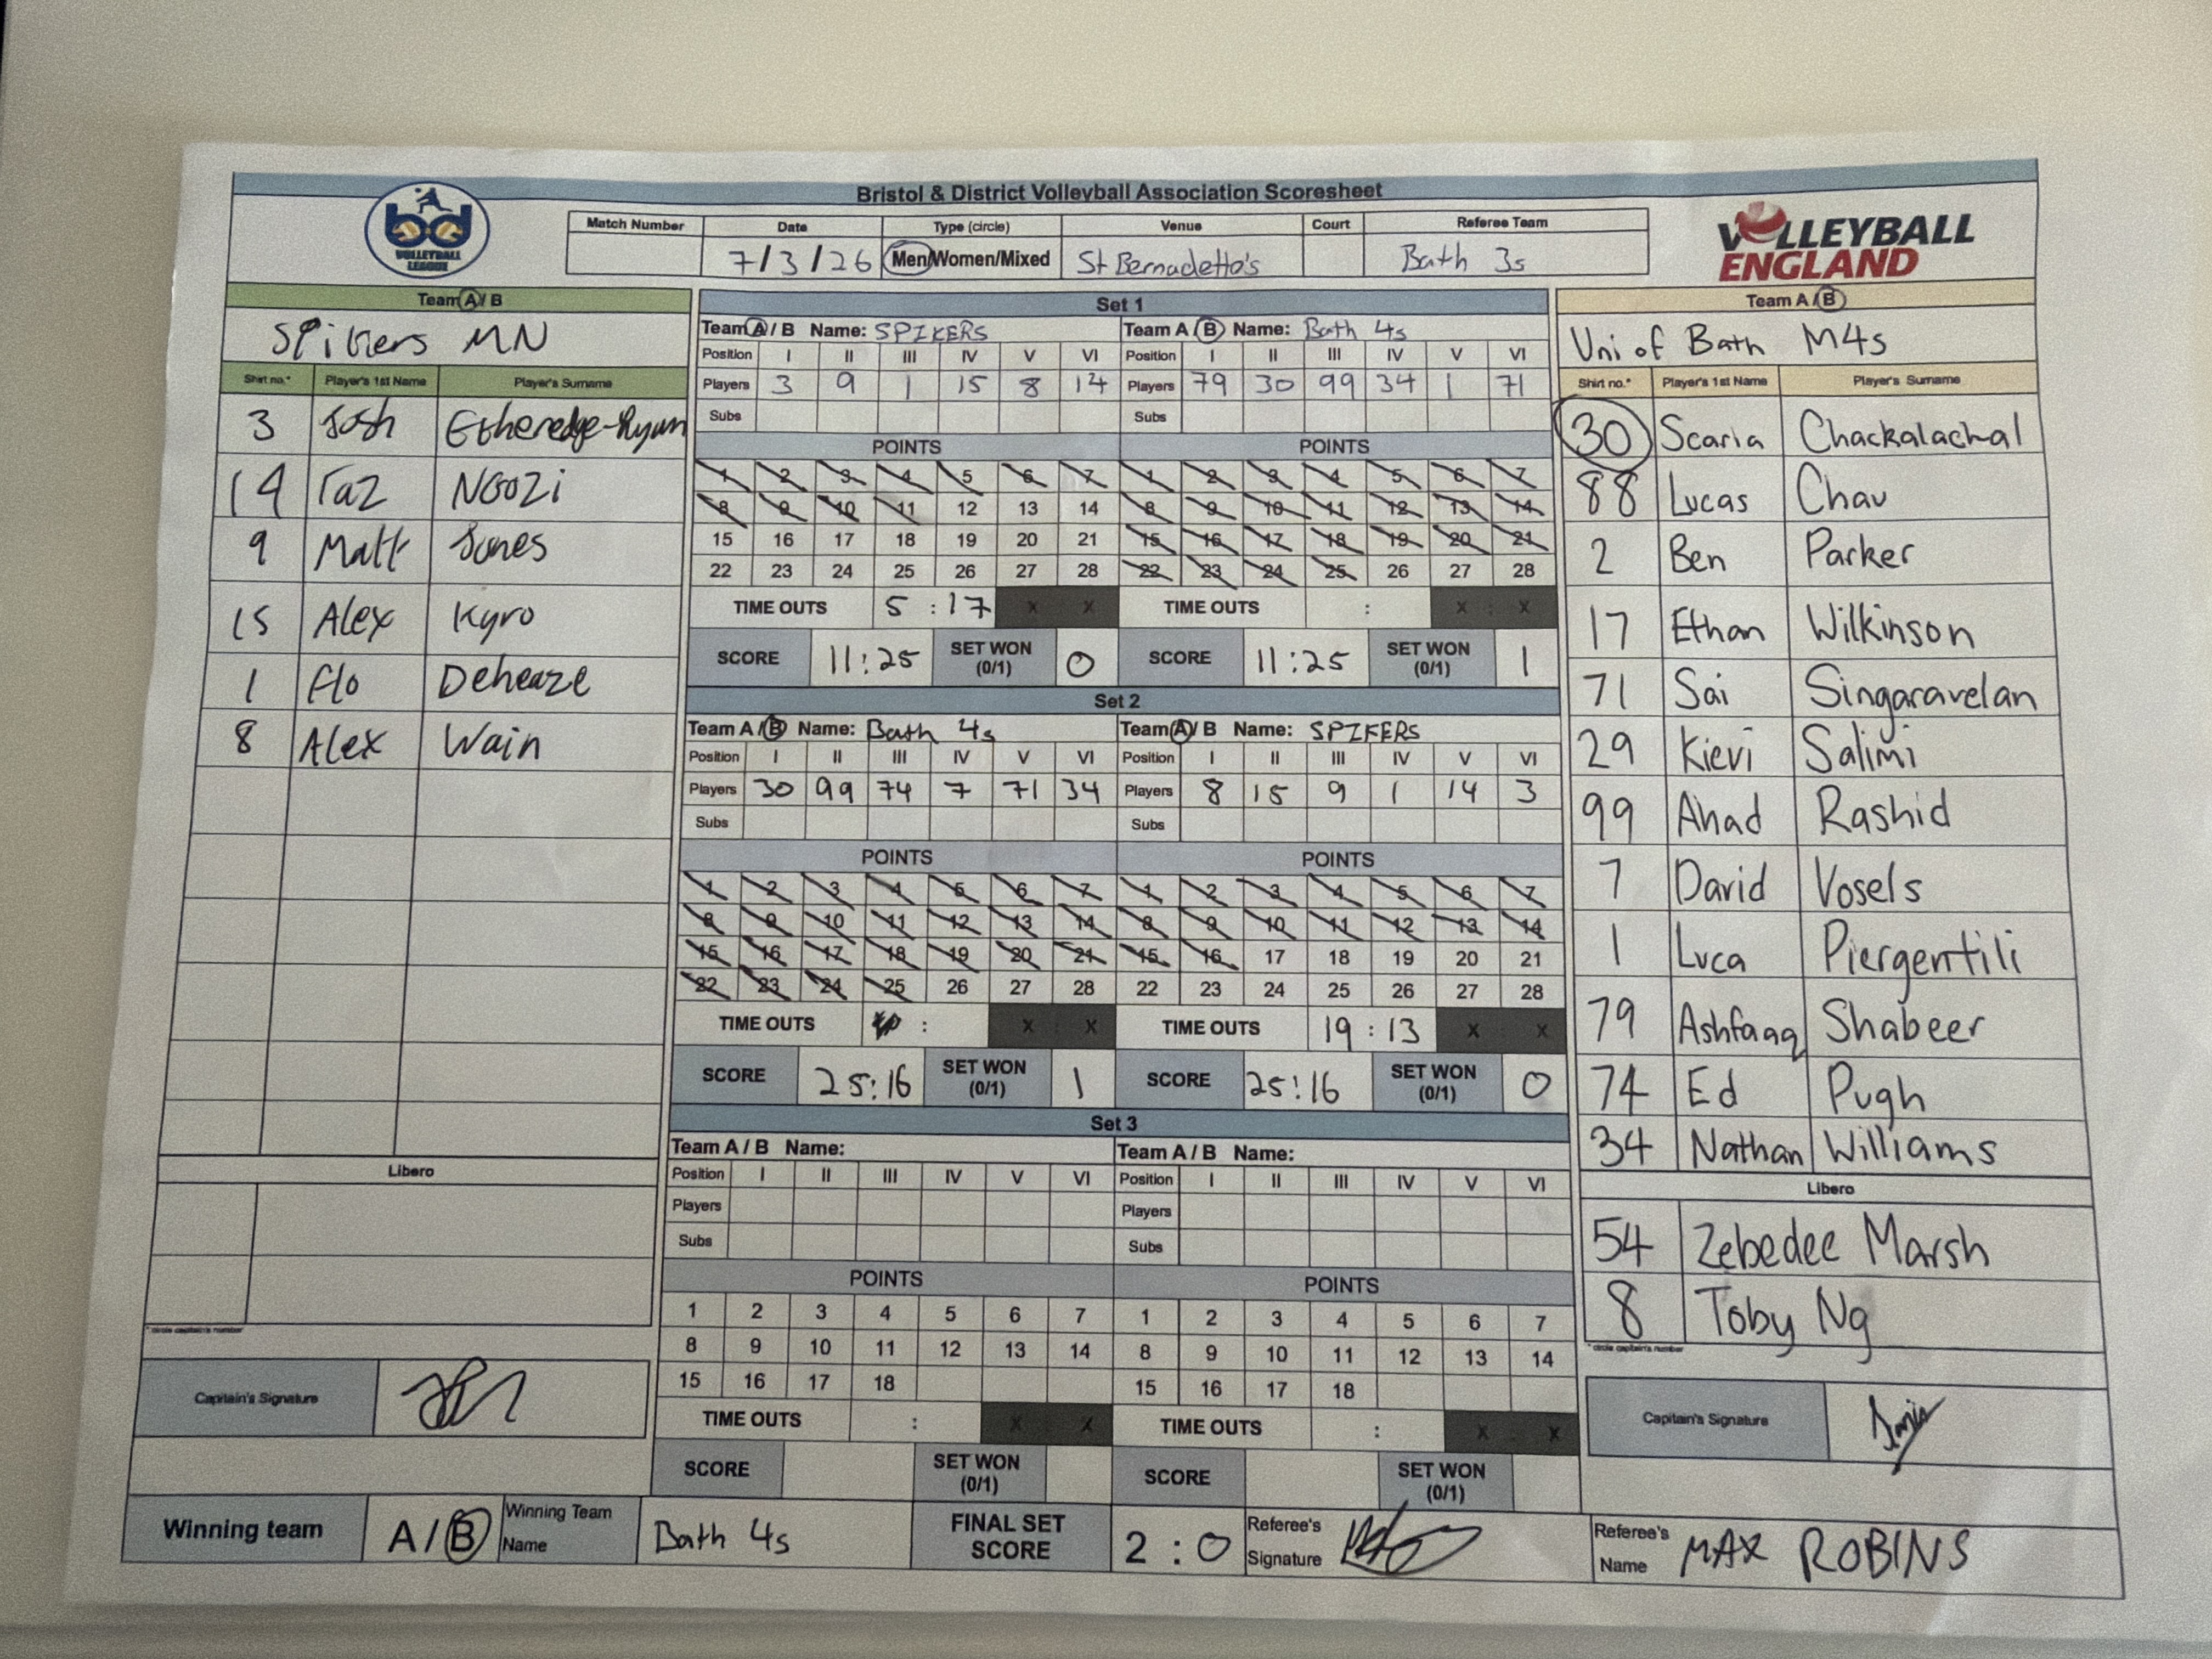 Bristol & District Volleyball Association Scoresheet
bd VOLLEYBALL LEAGUE
VOLLEYBALL ENGLAND
Match Number Date Type (circle) Venue Court Referee Team
7/3/26 Men/Women/Mixed St Bernadette's Bath 3s
Team A / B
Spikers MN
Shirt no.* Player's 1st Name Player's Surname
3 Josh Etheredge-Ryan
14 Taz NGOZi
9 Matt Jones
15 Alex Kyro
1 Flo Deheaze
8 Alex Wain
Libero
* circle captain's number
Captain's Signature
Set 1
Team A / B Name: SPIKERS Team A / B Name: Bath 4s
Position I II III IV V VI Position I II III IV V VI
Players 3 9 1 15 8 14 Players 79 30 99 34 1 71
Subs Subs
POINTS POINTS
1 2 3 4 5 6 7 1 2 3 4 5 6 7
8 9 10 11 12 13 14 8 9 10 11 12 13 14
15 16 17 18 19 20 21 15 16 17 18 19 20 21
22 23 24 25 26 27 28 22 23 24 25 26 27 28
TIME OUTS 5 : 17 X X TIME OUTS : X : X
SCORE 11:25 SET WON (0/1) 0 SCORE 11:25 SET WON (0/1) 1
Set 2
Team A / B Name: Bath 4s Team A / B Name: SPIKERS
Position I II III IV V VI Position I II III IV V VI
Players 30 99 74 7 71 34 Players 8 15 9 1 14 3
Subs Subs
POINTS POINTS
1 2 3 4 5 6 7 1 2 3 4 5 6 7
8 9 10 11 12 13 14 8 9 10 11 12 13 14
15 16 17 18 19 20 21 15 16 17 18 19 20 21
22 23 24 25 26 27 28 22 23 24 25 26 27 28
TIME OUTS : X X TIME OUTS 19 : 13 X X
SCORE 25:16 SET WON (0/1) 1 SCORE 25:16 SET WON (0/1) 0
Set 3
Team A / B Name: Team A / B Name:
Position I II III IV V VI Position I II III IV V VI
Players Players
Subs Subs
POINTS POINTS
1 2 3 4 5 6 7 1 2 3 4 5 6 7
8 9 10 11 12 13 14 8 9 10 11 12 13 14
15 16 17 18 15 16 17 18
TIME OUTS : X X TIME OUTS : X X
SCORE SET WON (0/1) SCORE SET WON (0/1)
Team A / B
Uni of Bath M4s
Shirt no.* Player's 1st Name Player's Surname
30 Scaria Chackalachal
88 Lucas Chau
2 Ben Parker
17 Ethan Wilkinson
71 Sai Singaravelan
29 Kievi Salimi
99 Ahad Rashid
7 David Vosels
1 Luca Piergentili
79 Ashfaaq Shabeer
74 Ed Pugh
34 Nathan Williams
Libero
54 Zebedee Marsh
8 Toby Ng
* circle captain's number
Captain's Signature
Winning team A/B Winning Team Name Bath 4s FINAL SET SCORE 2 : 0 Referee's Signature Referee's Name MAX ROBINS